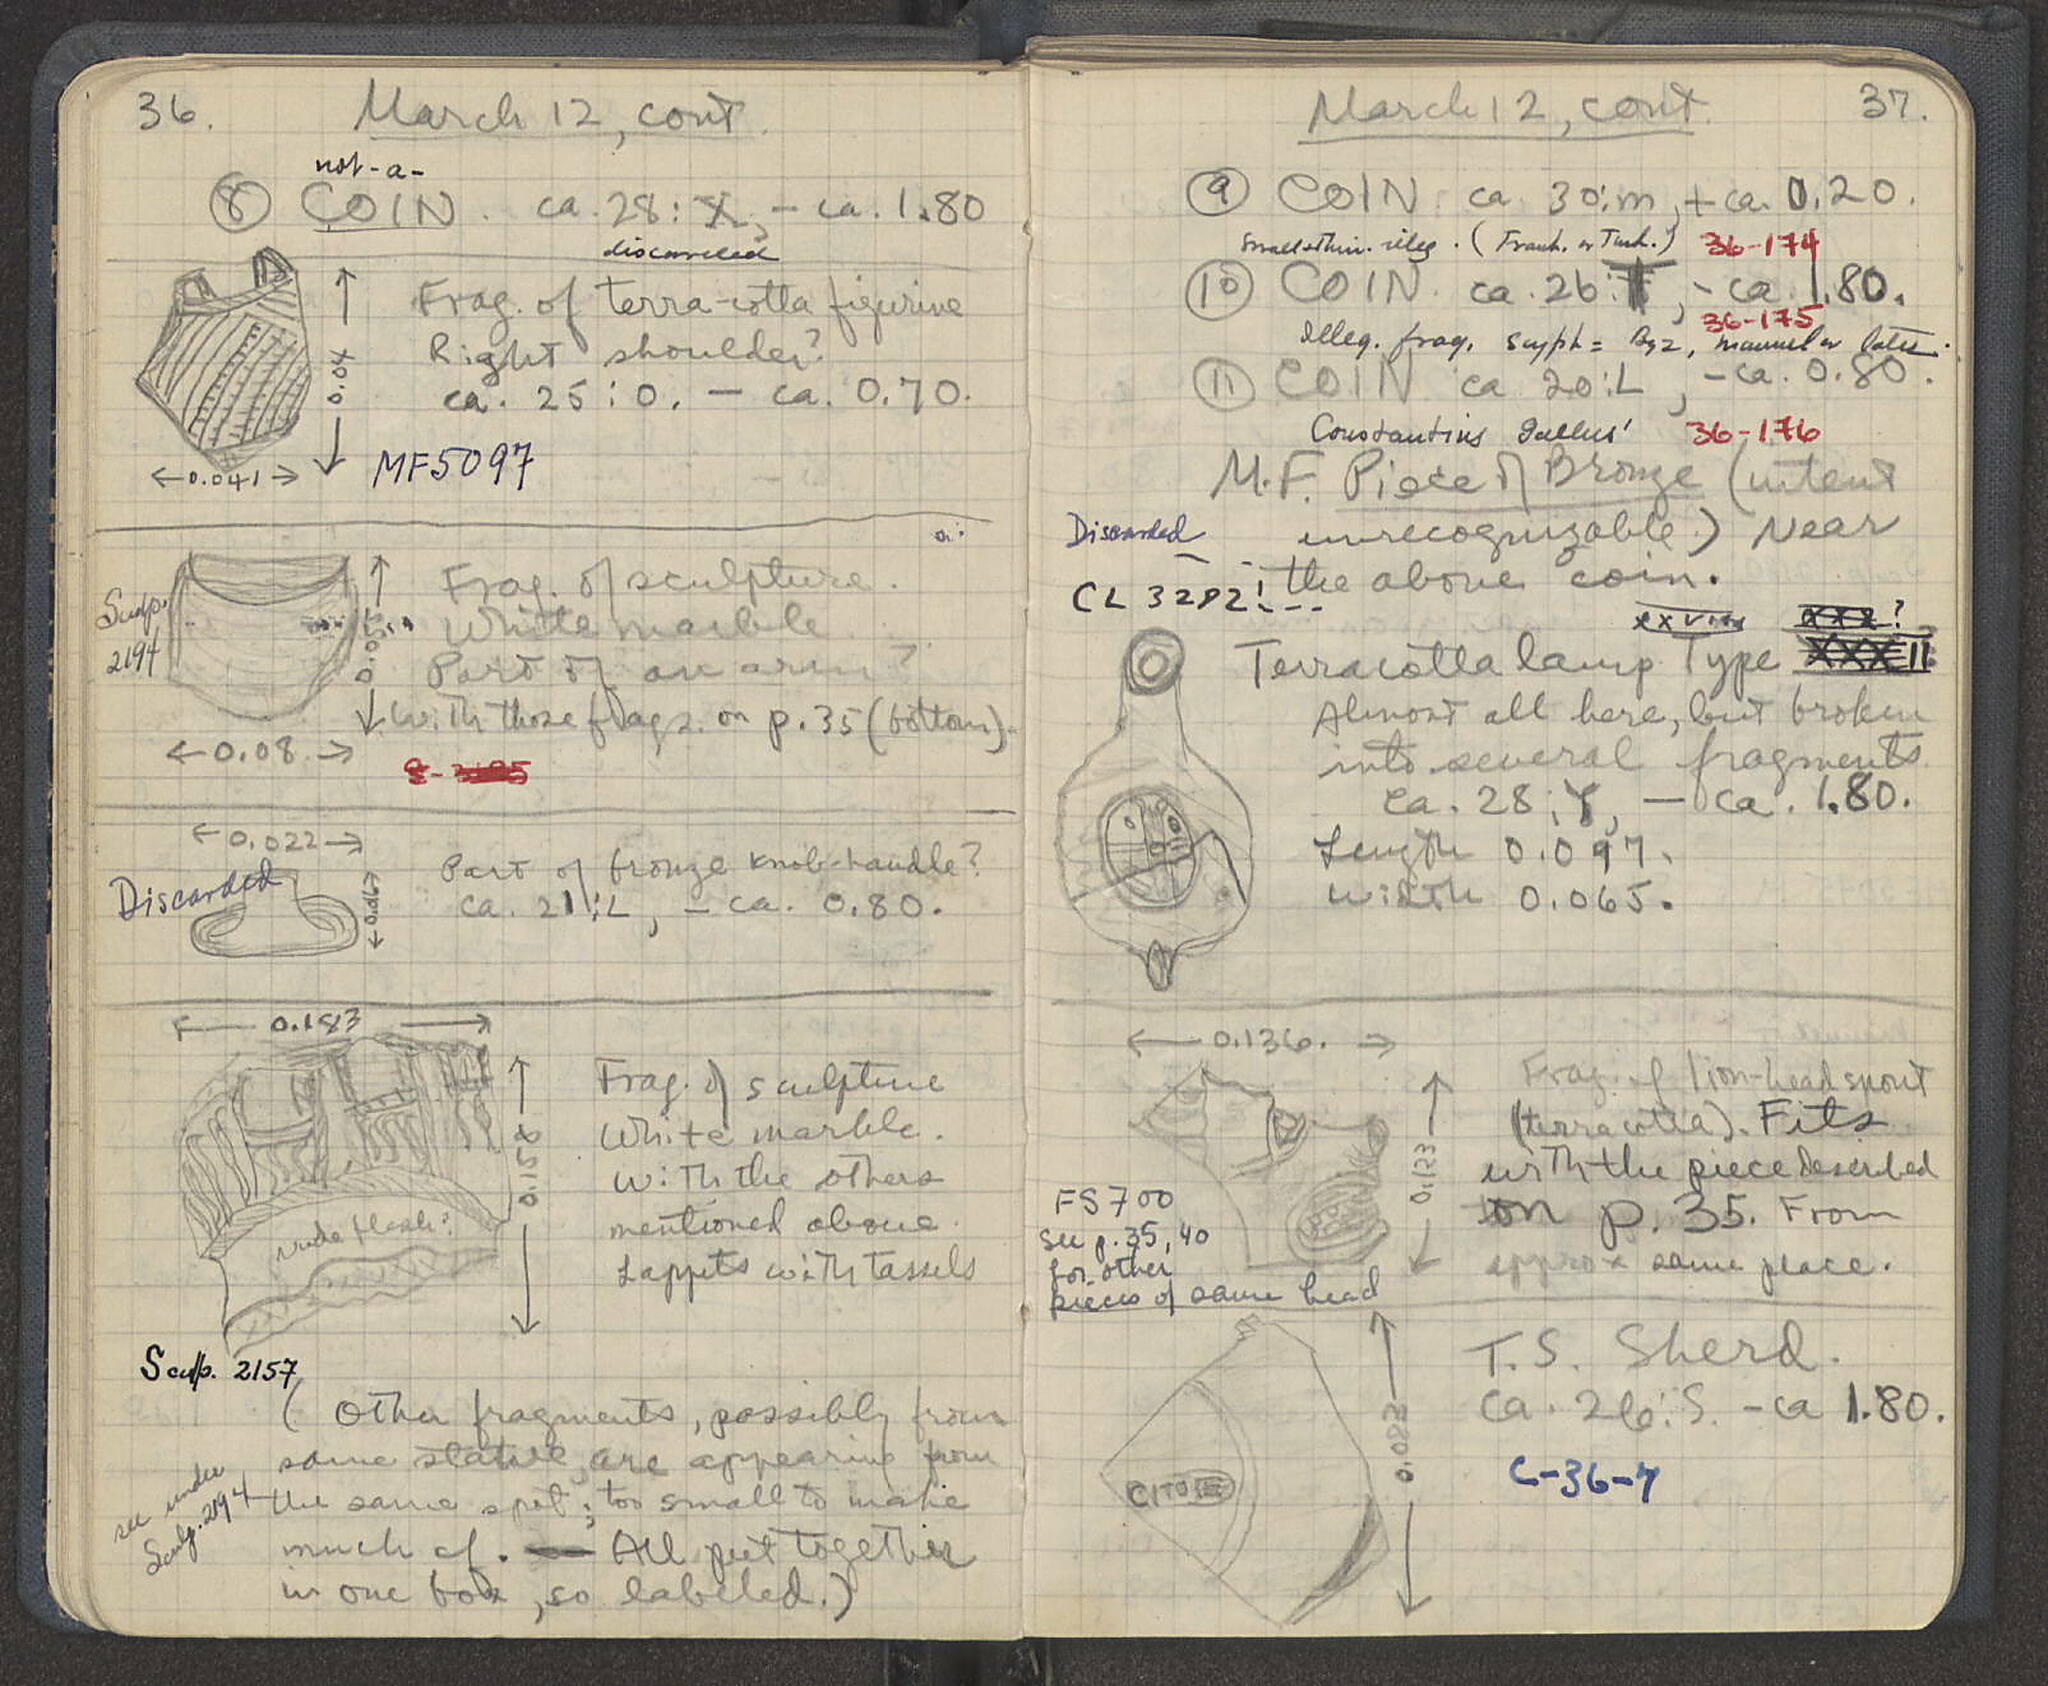 36.
March 12, cont.
not-a-
⑧ COIN. ca. 28: X, - ca. 1.80
discarded
Frag. of terra-cotta figurine
Right shoulder?
ca. 25:O. - ca. 0.70.
0.04
←0.041→
MF5097
Sculp.
2194
Frag. of sculpture.
White marble
Part of an arm?
With those frags. on p. 35 (bottom).
←0.08→
←0.022→
Discarded
Part of bronze knob-handle?
ca. 21:L, - ca. 0.80.
←0.183→
Frag. of sculpture
White marble.
With the others
mentioned above.
Lappets with tassels
nude flesh?
Sculp. 2157
(Other fragments, possibly from
same statue, are appearing from
the same spot; too small to make
much of. — All put together
in one box, so labeled.)
see under
Sculp. 2194
March 12, cont.
37.
⑨ COIN ca. 30:m, + ca. 0.20.
Small + thin. illeg. (Frank. or Turk.) 36-174
⑩ COIN. ca. 26:T, - ca. 1.80.
36-175
Illeg. frag. scyph = Byz, manuel or later.
⑪ COIN ca 20:L, - ca. 0.80.
Constantius Gallus' 36-176
M.F. Piece of Bronze (intent
Discarded
unrecognizable.) Near
the above coin.
CL 3282
xxviii
Terracotta lamp Type
Almost all here, but broken
into several fragments
ca. 28:Y, - ca. 1.80.
Length 0.097.
width 0.065.
←0.136.→
0.123
Frag. of lion-head spout
(terracotta). Fits
with the piece described
on p. 35. From
approx same place.
FS 700
see p. 35, 40
for other
pieces of same head
T.S. Sherd.
Ca. 26:S. - ca 1.80.
C-36-7
0.083